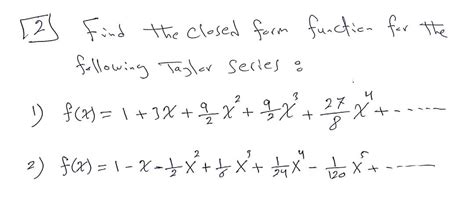 [2] Find the closed form function for the
following Taylor series :
1) f(x) = 1 + 3x + 9/2 x² + 9/2 x³ + 27/8 x⁴ + ------
2) f(x) = 1 - x - 1/2 x² + 1/6 x³ + 1/24 x⁴ - 1/120 x⁵ + -----